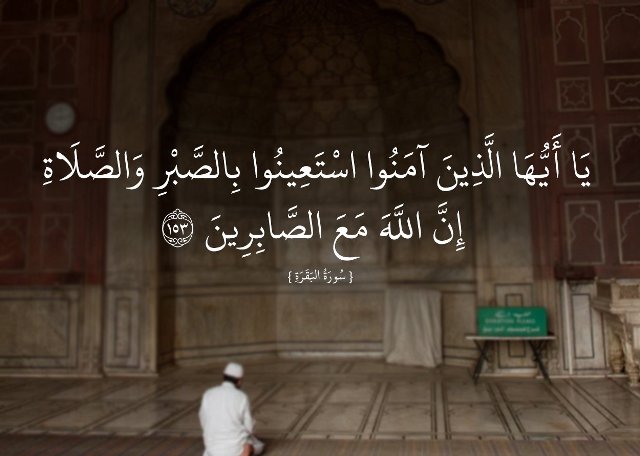 يَا أَيُّهَا الَّذِينَ آمَنُوا اسْتَعِينُوا بِالصَّبْرِ وَالصَّلَاةِ
إِنَّ اللَّهَ مَعَ الصَّابِرِينَ ١٥٣
{ سُورَةُ البَقَرَةِ }